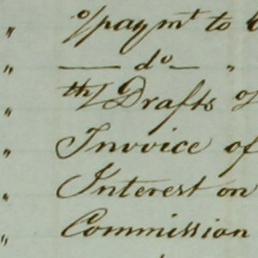 " %paymt to
" — do — "
" th/ Drafts of
" Invoice of
" Interest on
" Commission